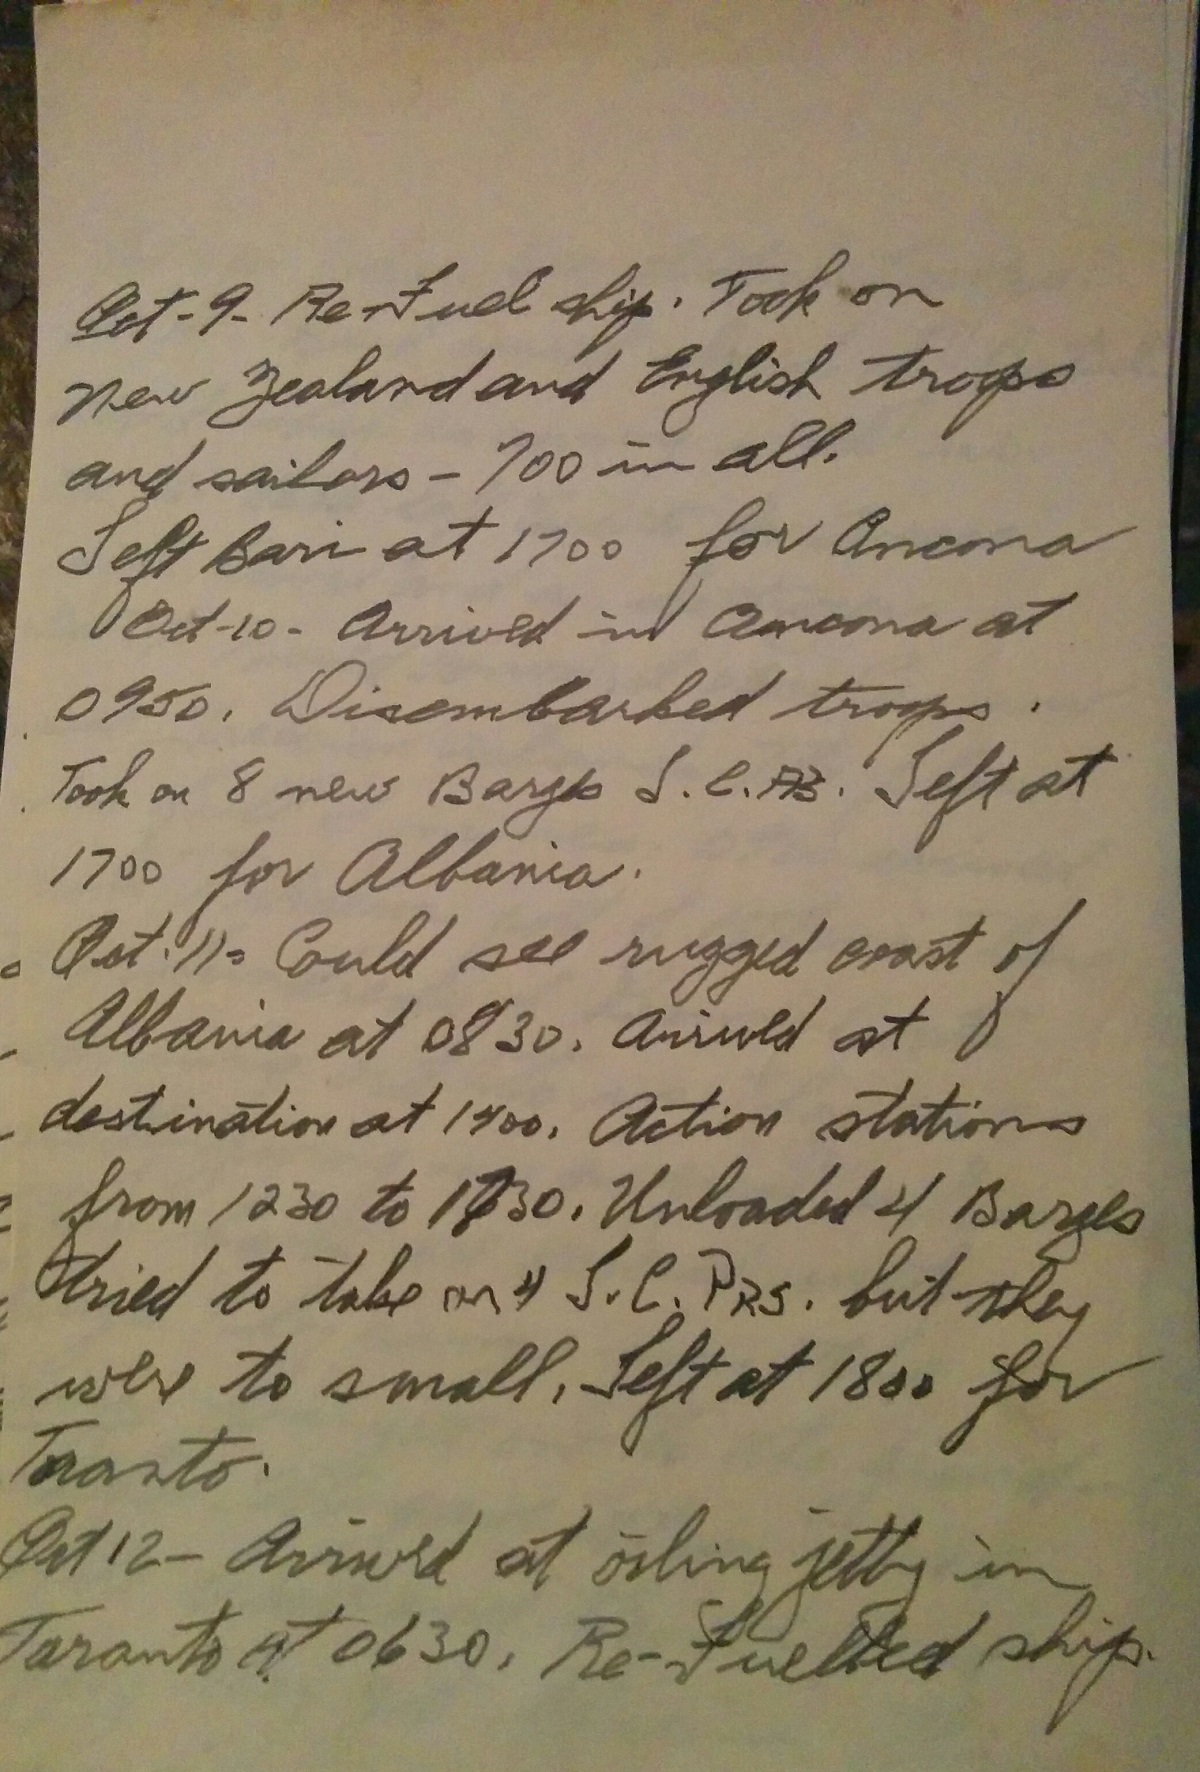 Oct-9- Re-Fuel ship. Took on
New Zealand and English troops
and sailors - 700 in all.
Left Bari at 1700 for Ancona
Oct-10- Arrived in Ancona at
0950. Disembarked troops.
Took on 8 new Barges L.C. Left at
1700 for Albania.
Oct. 11- Could see rugged coast of
Albania at 0830. Arrived at
destination at 1400. Action stations
from 1230 to 1730. Unloaded 4 Barges
tried to take on 4 L.C. PRS. but they
were to small. Left at 1800 for
Taranto.
Oct 12- Arrived at oiling jetty in
Taranto at 0630. Re-Fuelled ship.